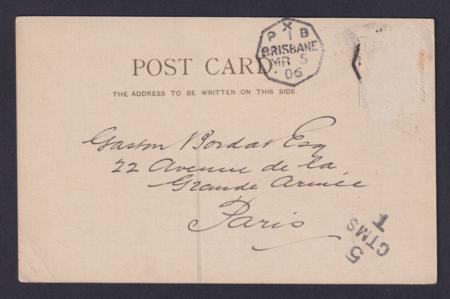 X
P 1 B
BRISBANE
MR 5
06
POST CARD
THE ADDRESS TO BE WRITTEN ON THIS SIDE
Gaston Bordat Esq
22 Avenue de la
Grande Armée
Paris
T
5
CTMS